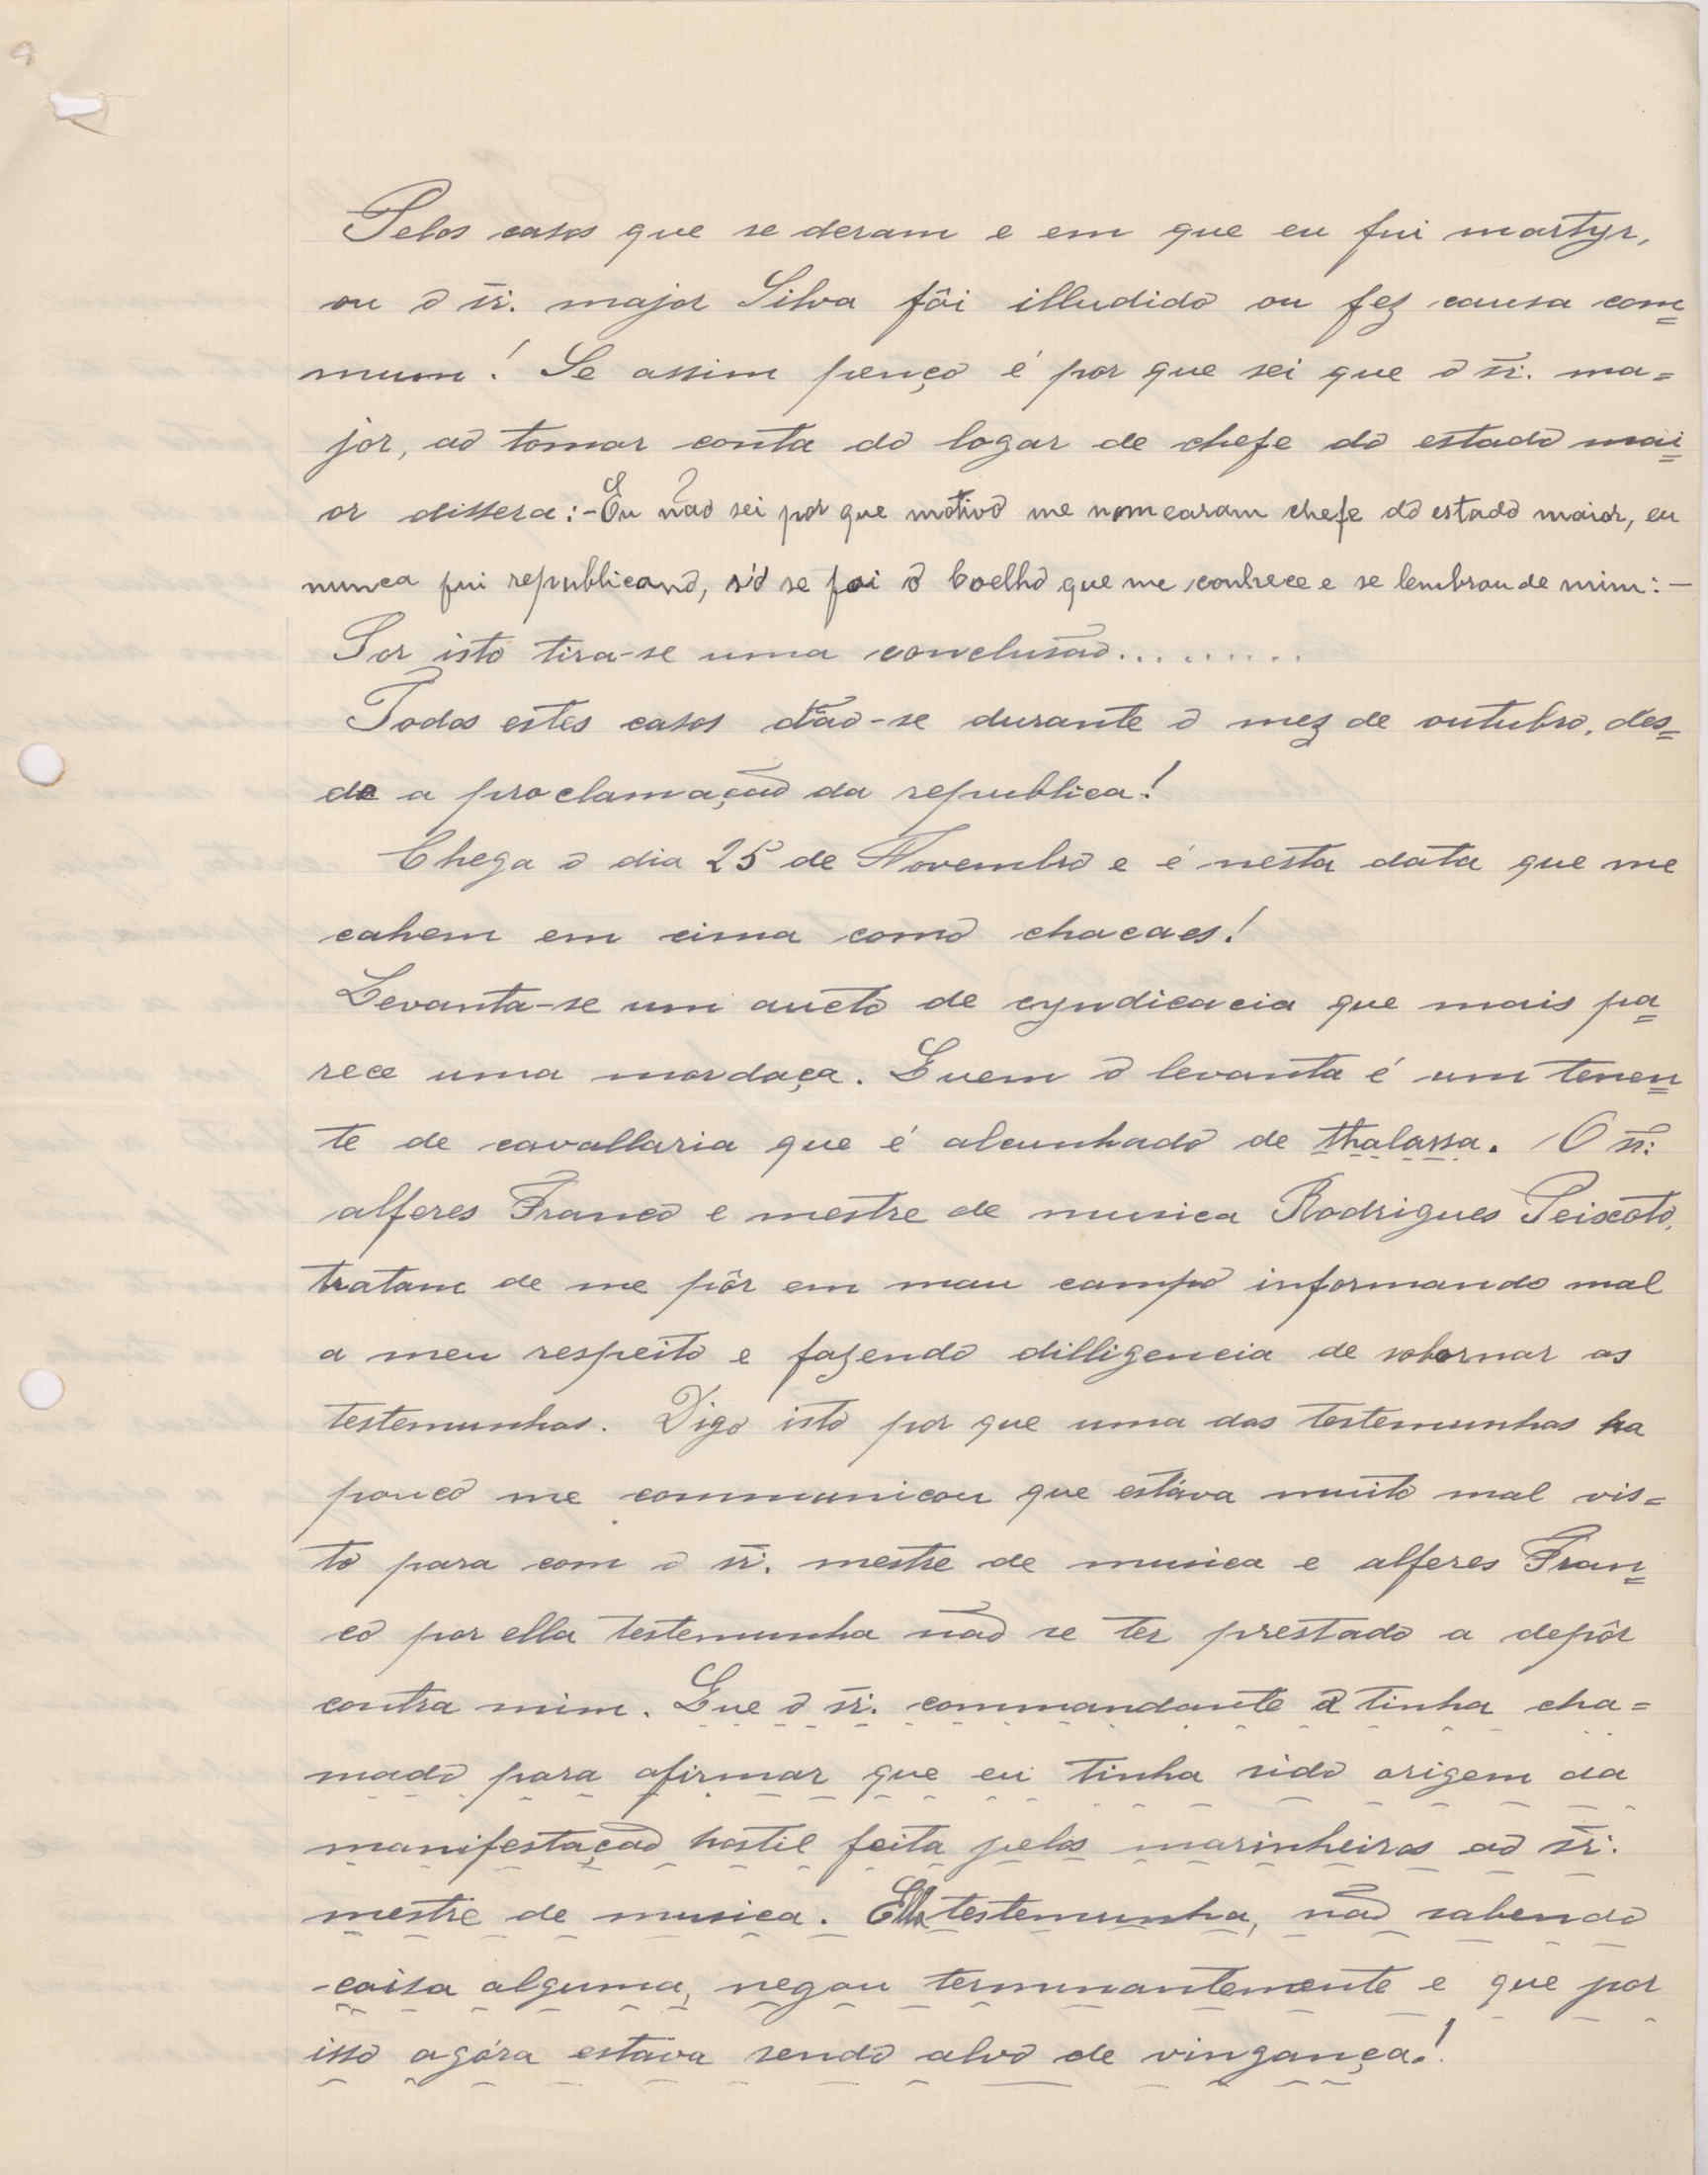 Pelos casos que se deram e em que eu fui martyr,
ou o sr. major Silva fôi illudido ou fez causa com=
mum! Se assim penço é por que sei que o sr. ma=
jor, ao tomar conta do logar de chefe do estado mai=
or dissera:-Eu não sei por que motivo me nomearam chefe do estado maior, eu
nunca fui republicano, só se foi o Coelho que me conhece e se lembrou de mim:-
Por isto tira-se uma conclusão..........
Todos estes casos dão-se durante o mez de outubro, des=
de a proclamação da republica!
Chega o dia 25 de Novembro e é nesta data que me
cahem em cima como chacaes!
Levanta-se um aucto de cyndicacia que mais pa=
rece uma mordaça. Quem o levanta é um tenen=
te de cavallaria que é alcunhado de thalassa. O sr:
alferes Franco e mestre de musica Rodrigues Peixoto,
tratam de me pôr em mau campo informando mal
a meu respeito e fazendo dilligencia de sobornar as
testemunhas. Digo isto por que uma das testemunhas ha
pouco me communicou que estáva muito mal vis=
to para com o sr. mestre de musica e alferes Fran=
co por ella testemunha não se ter prestado a depôr
contra mim. Que o sr. commandante a tinha cha=
mado para afirmar que eu tinha sido origem da
manifestação hostil feita pelos marinheiros ao sr.
mestre de musica. Ella testemunha, não sabendo
-coisa alguma, negou terminantemente e que por
isso agóra estava sendo alvo de vingança!